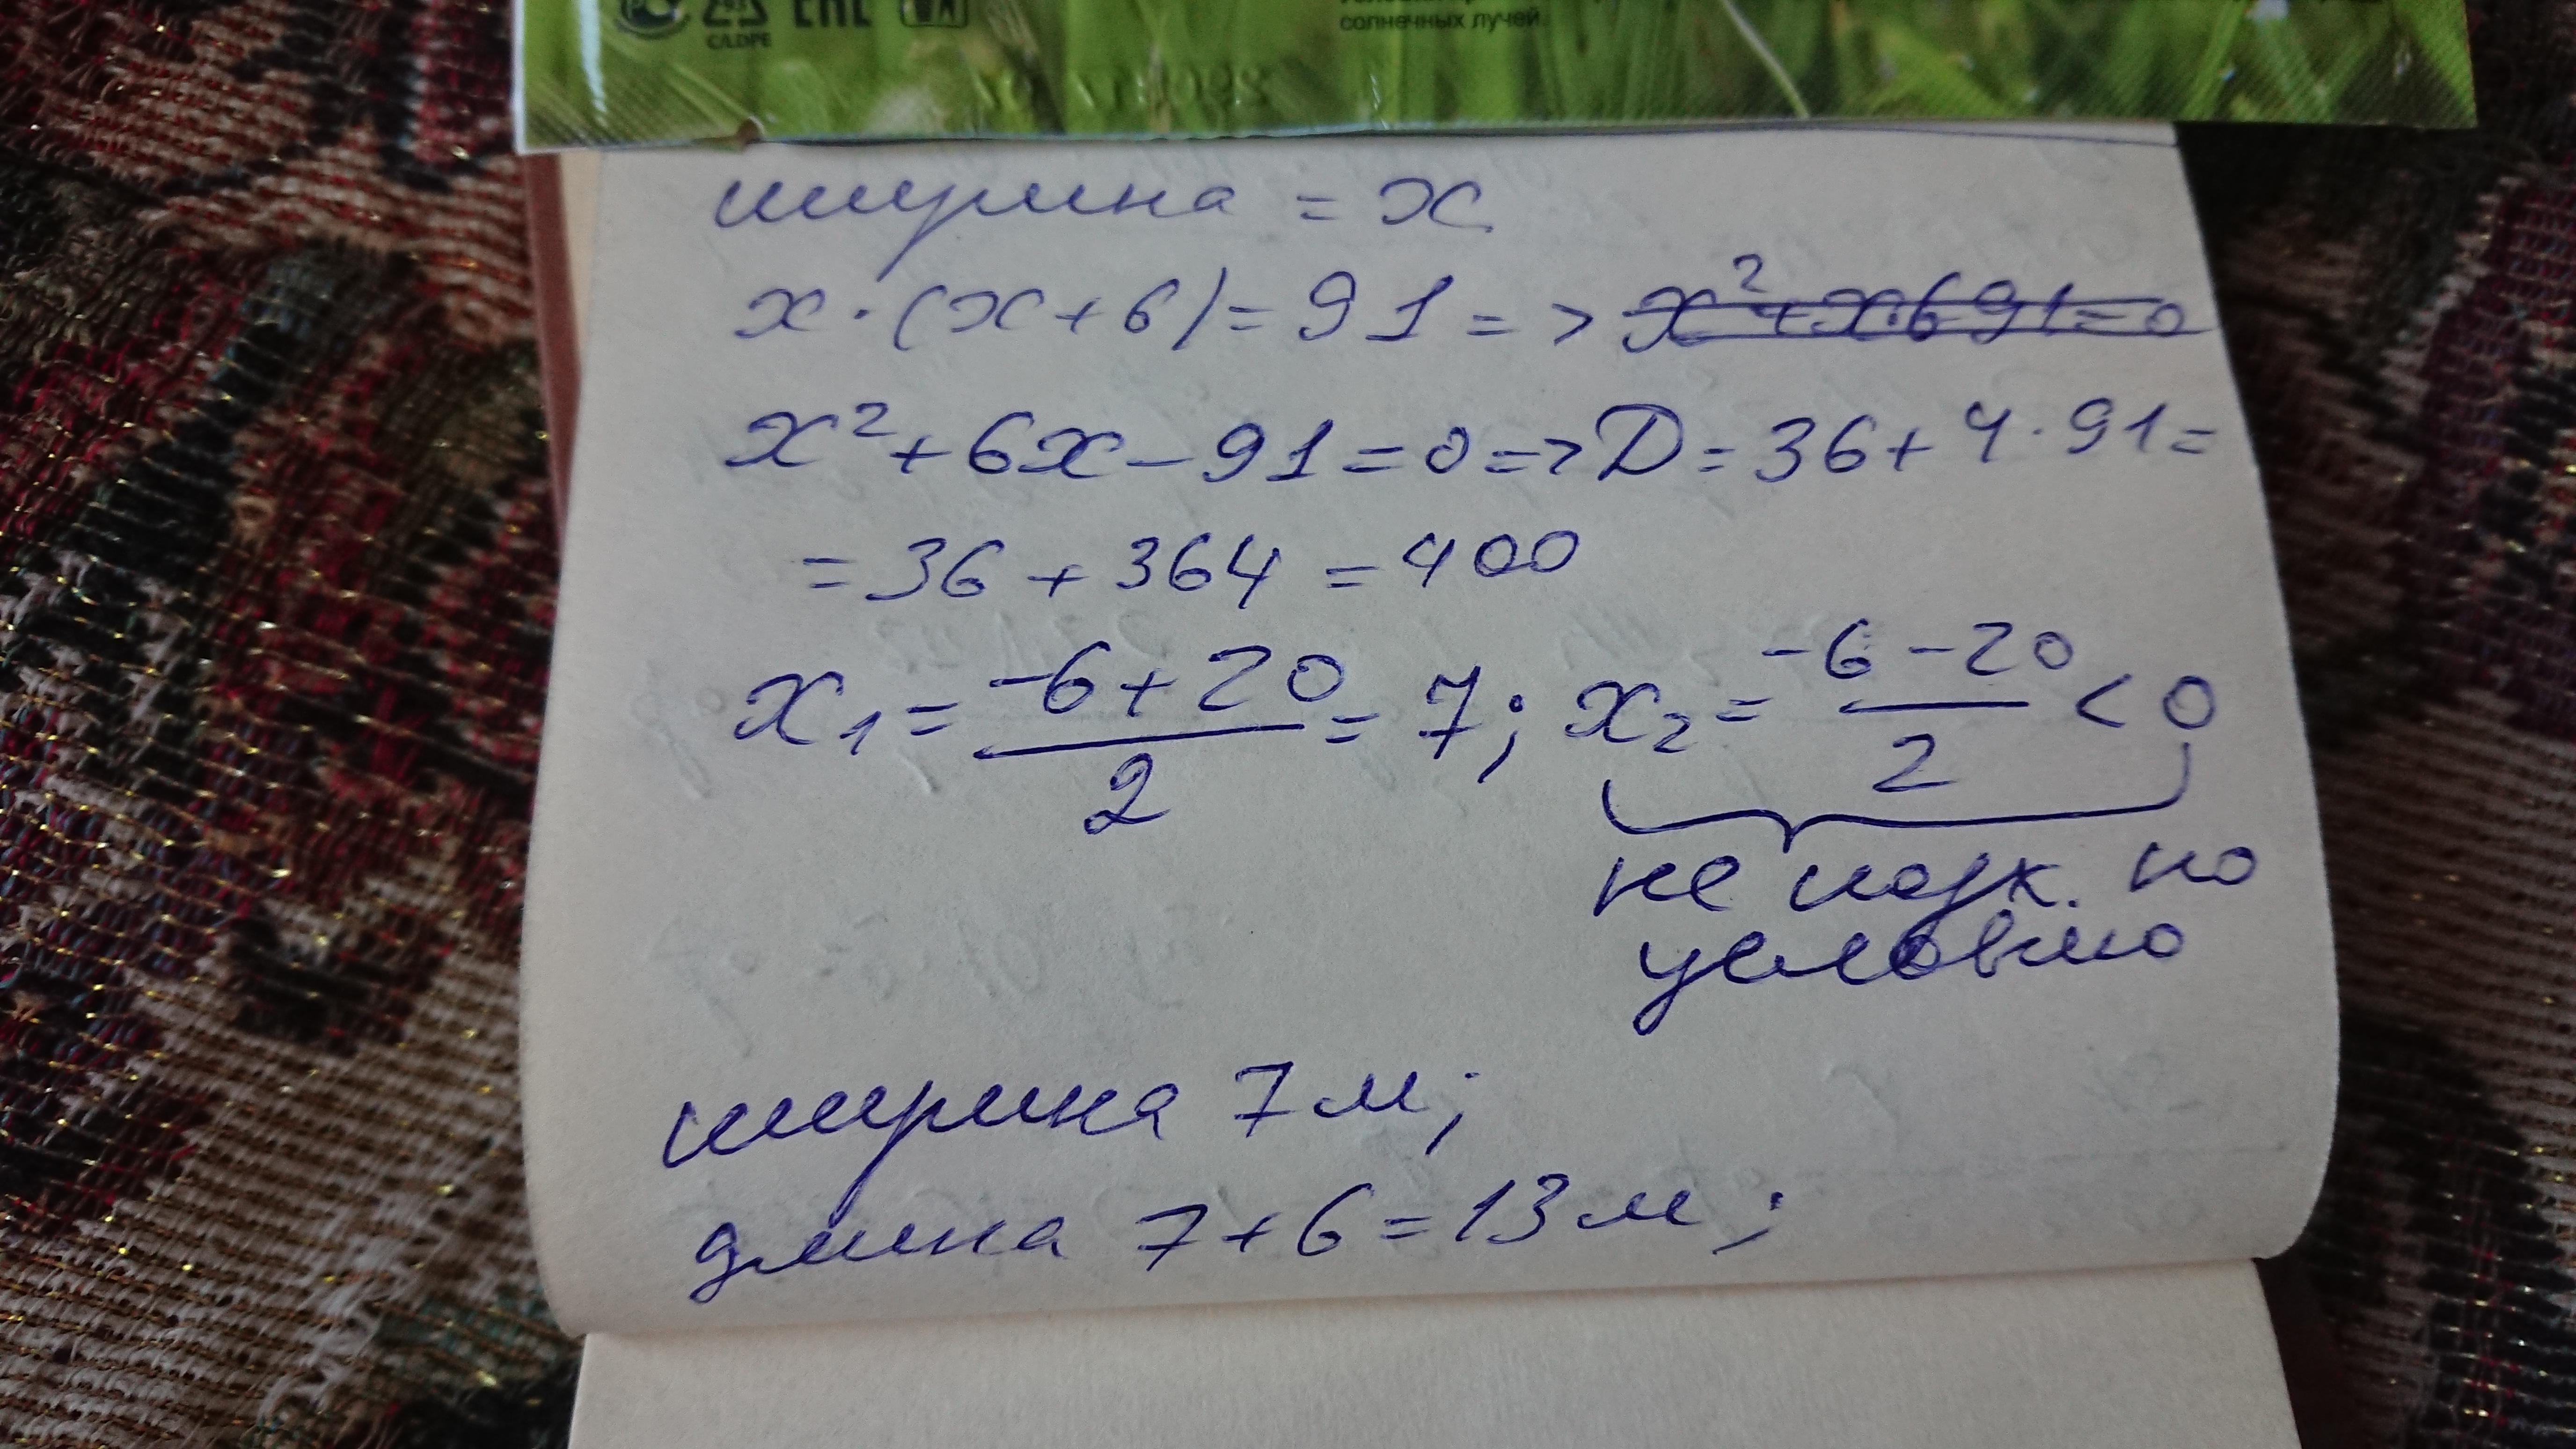 C/LDPE
ЕАС
солнечных лучей.
ширина = x
x · (x + 6) = 91 =>
x² + 6x - 91 = 0 => D = 36 + 4 · 91 =
= 36 + 364 = 400
x₁ = (-6 + 20)/2 = 7; x₂ = (-6 - 20)/2 < 0
не подх. по
условию
ширина 7 м;
длина 7 + 6 = 13 м;